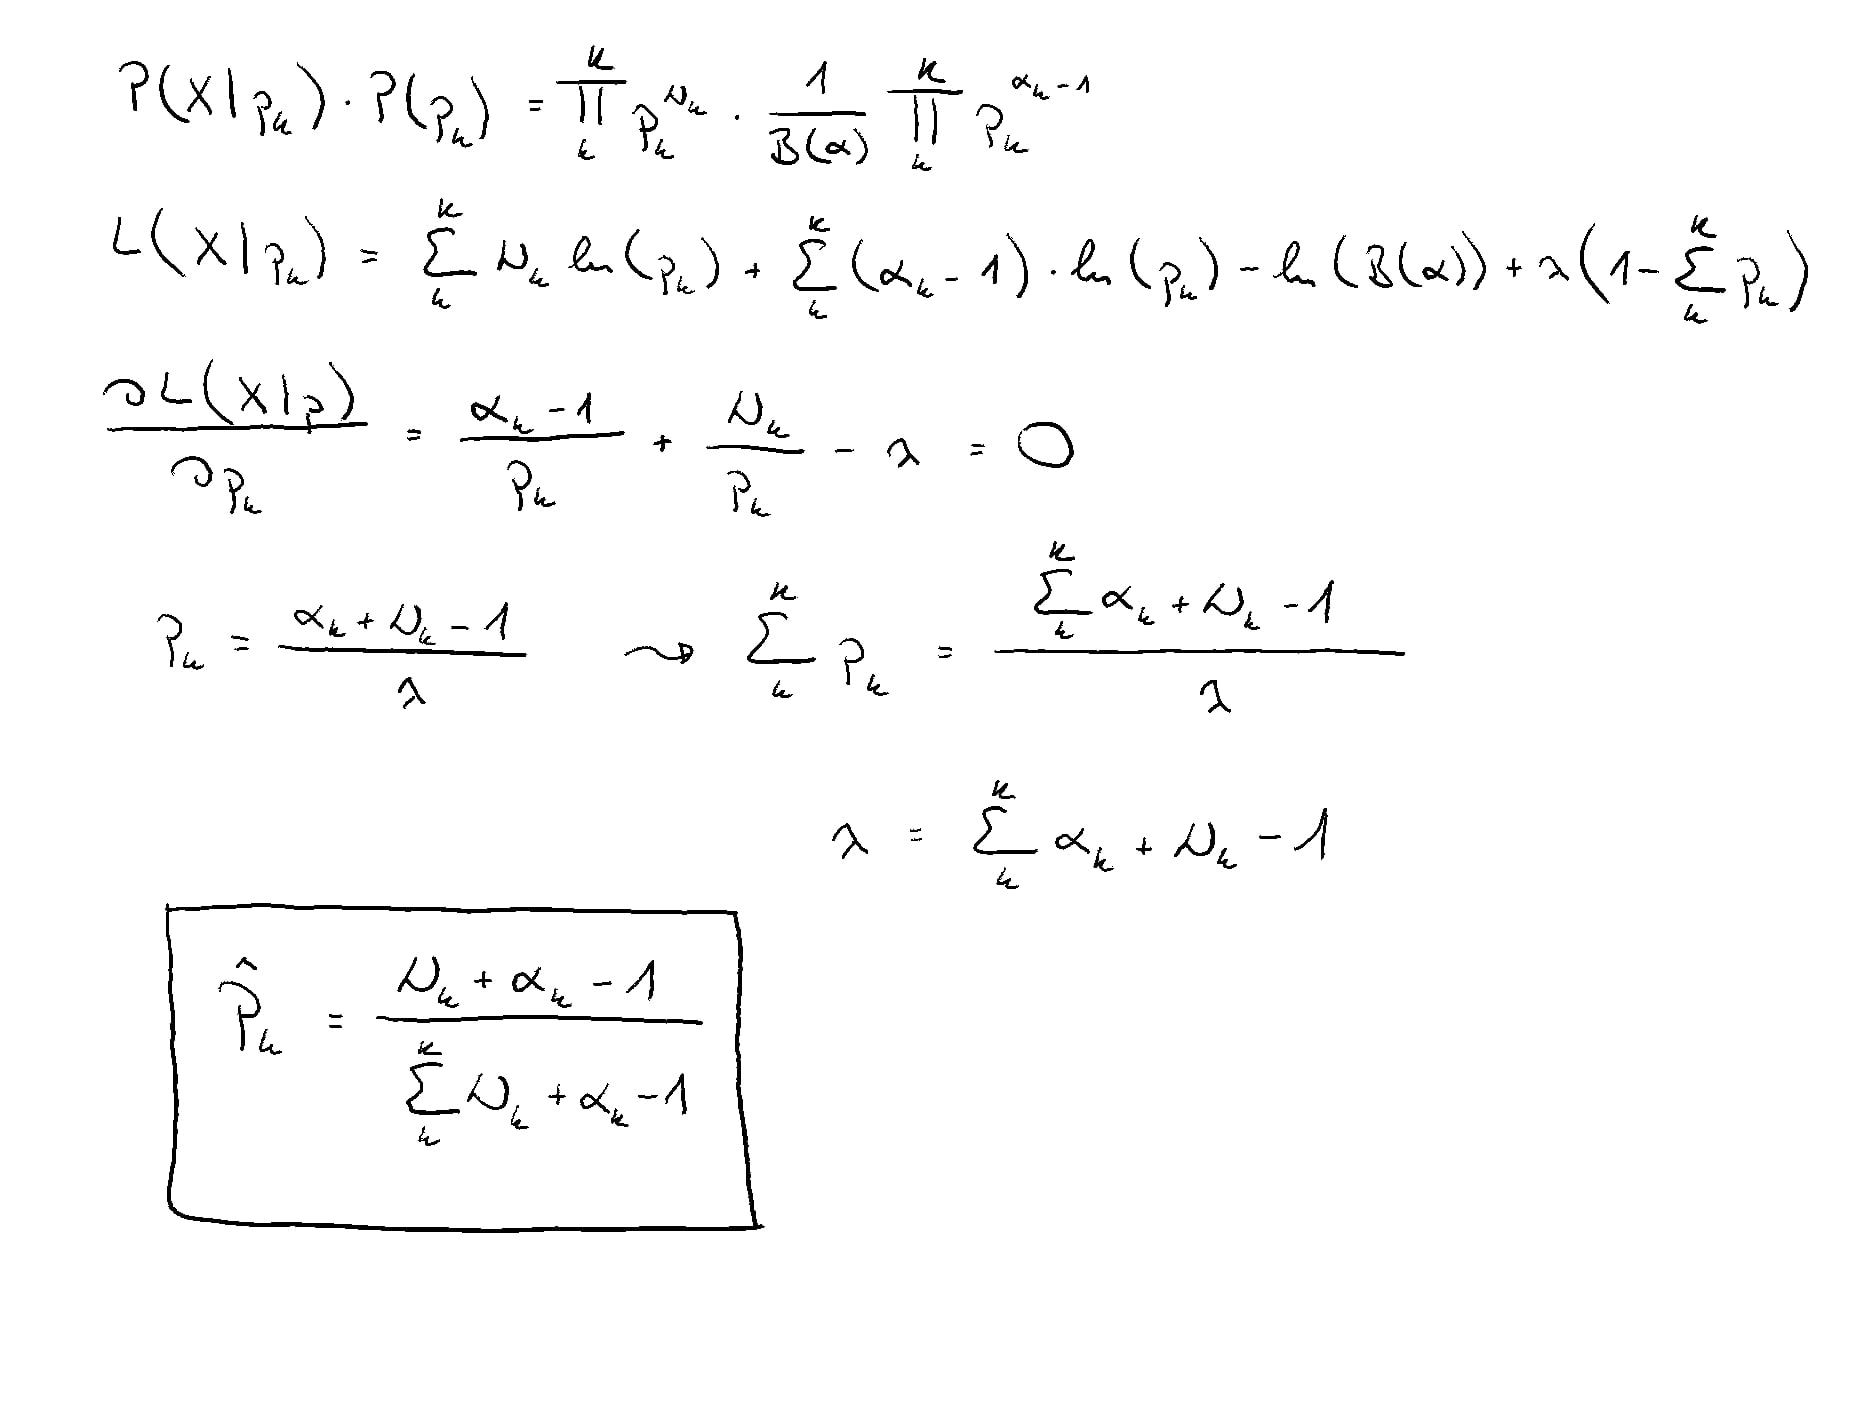 P(X|p_k) · P(p_k) = ∏_k^K p_k^{N_k} · 1/B(α) ∏_k^K p_k^{α_k - 1}
L(X|p_k) = ∑_k^K N_k ln(p_k) + ∑_k^K (α_k - 1) · ln(p_k) - ln(B(α)) + λ(1 - ∑_k^K p_k)
∂L(X|p)/∂p_k = (α_k - 1)/p_k + N_k/p_k - λ = 0
p_k = (α_k + N_k - 1)/λ ⇝ ∑_k^K p_k = (∑_k^K α_k + N_k - 1)/λ
λ = ∑_k^K α_k + N_k - 1
p̂_k = (N_k + α_k - 1)/(∑_k^K N_k + α_k - 1)